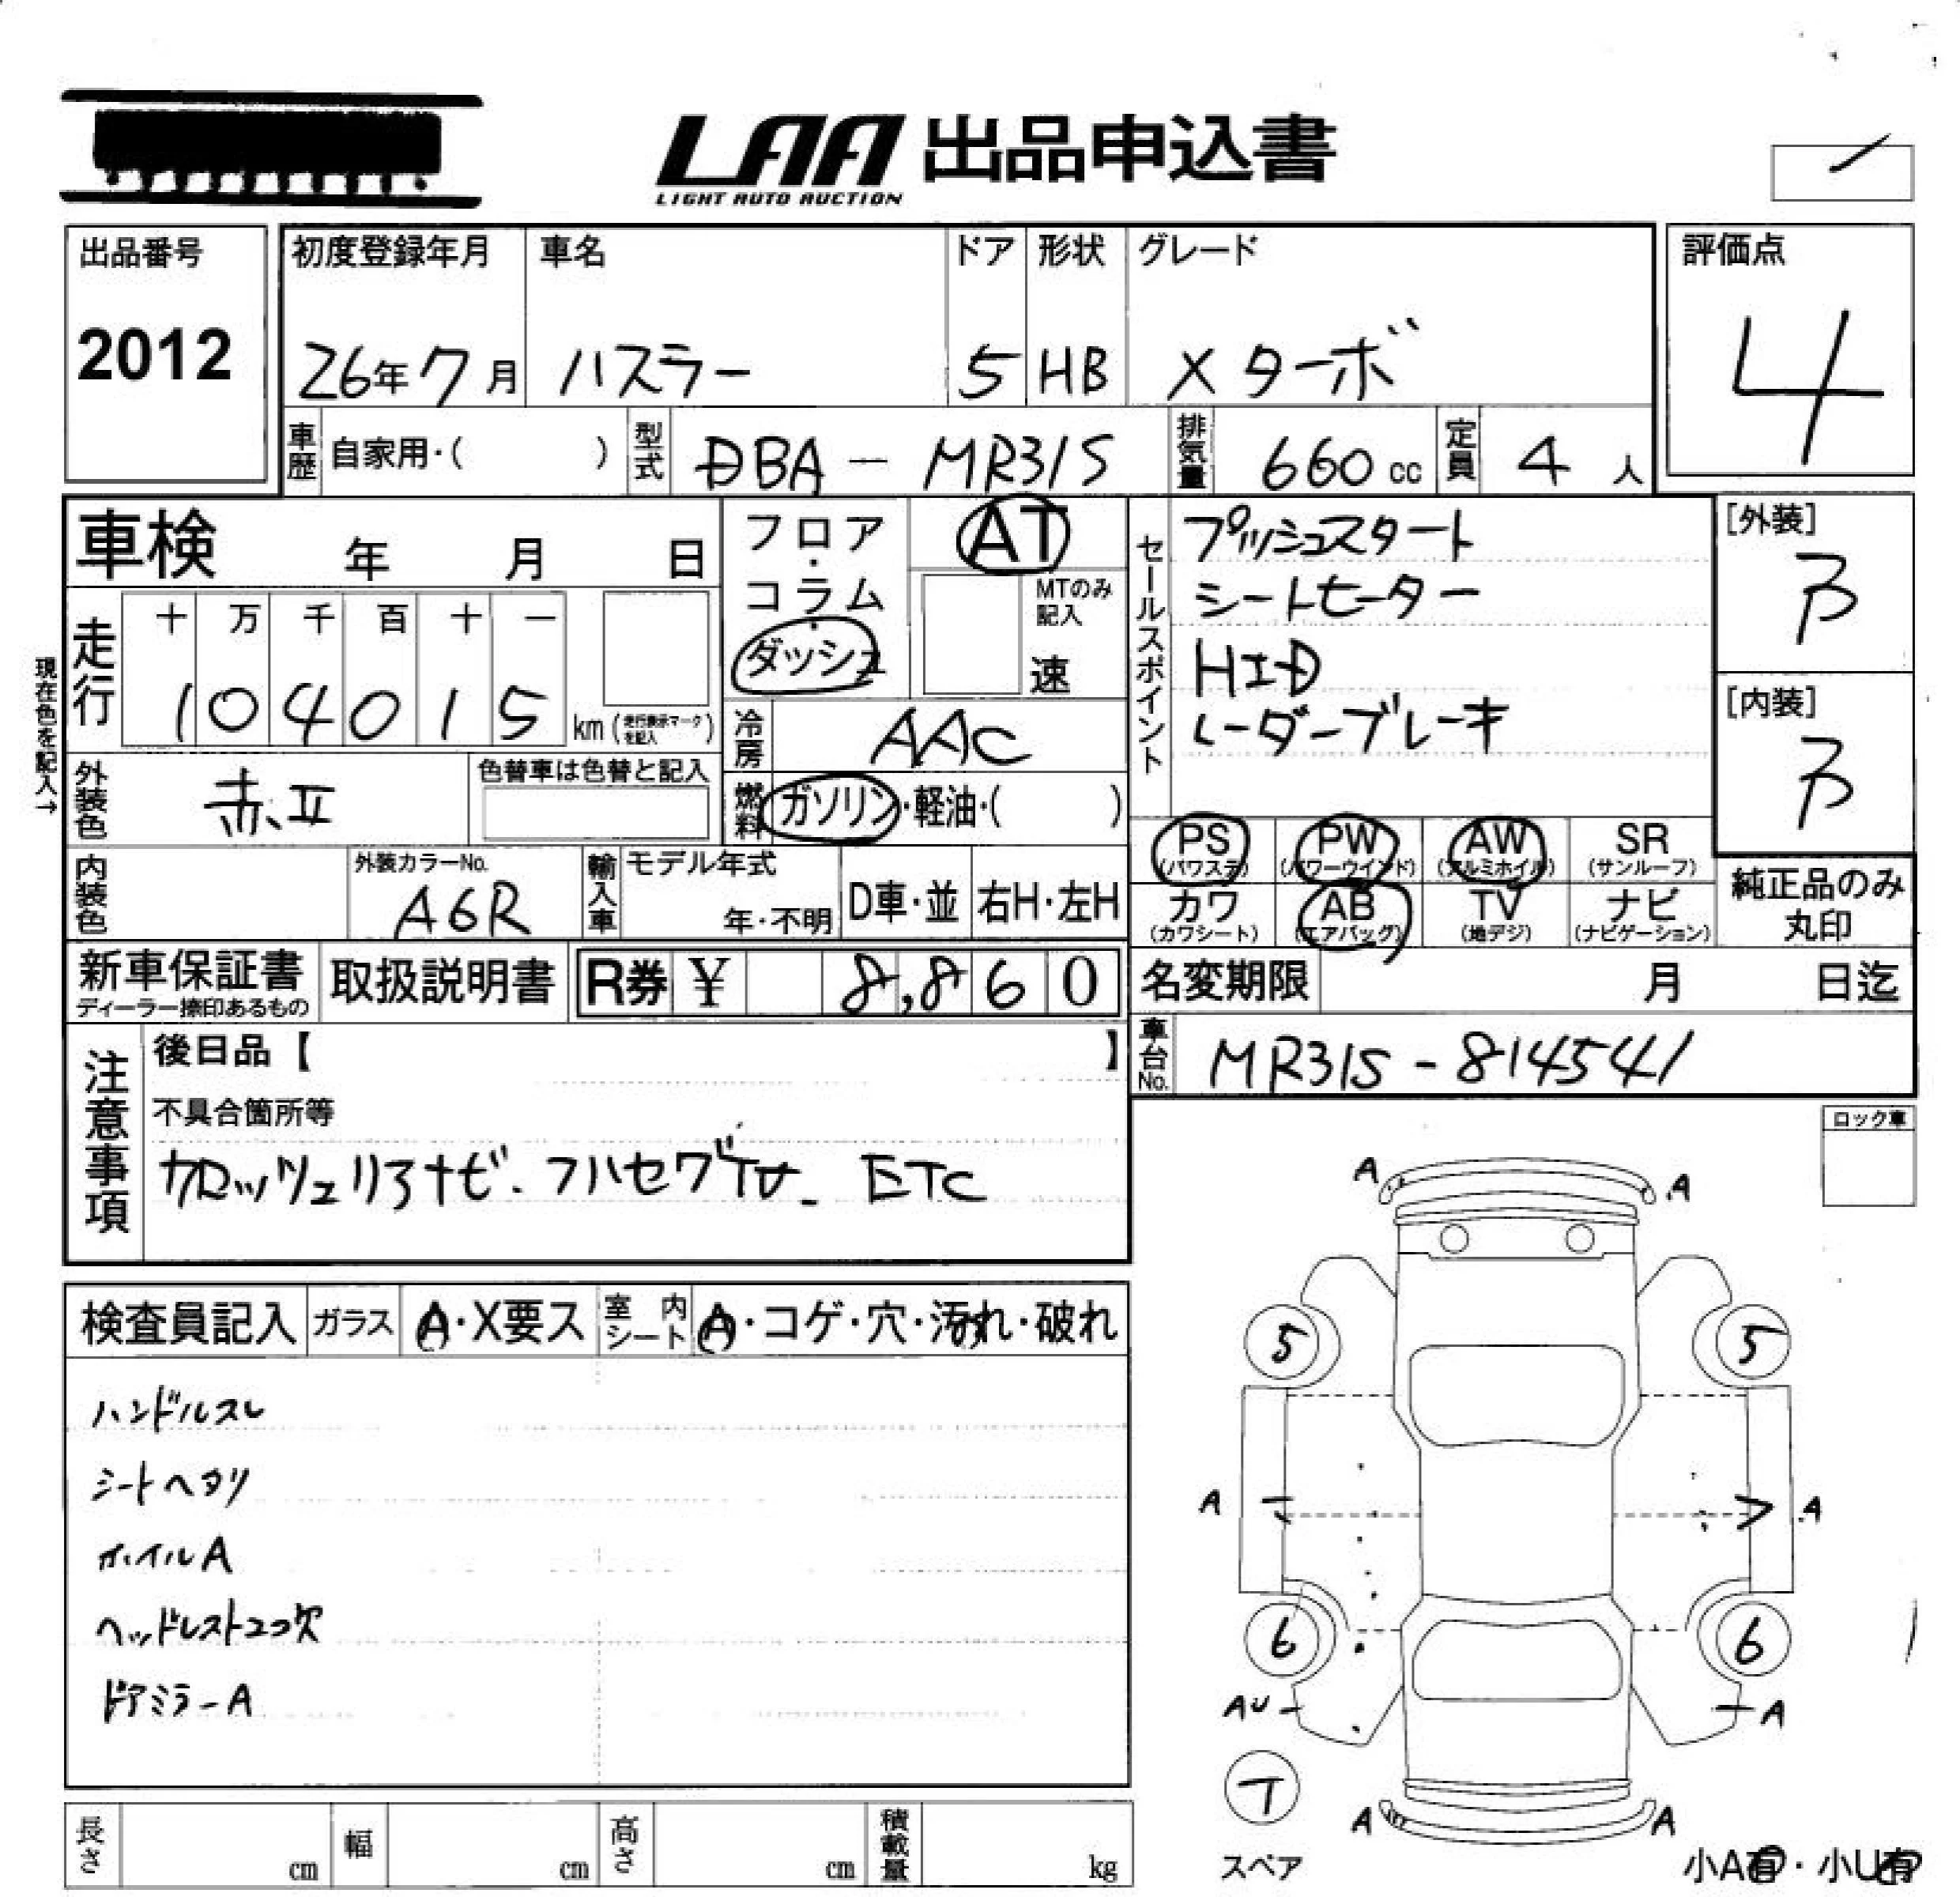 LAA 出品申込書
LIGHT AUTO AUCTION
出品番号
2012
初度登録年月 車名 ドア 形状 グレード
26年7月 ハスラー 5 HB X ターボ
評価点
4
車歴 自家用・( ) 型式 DBA - MR31S 排気量 660 cc 定員 4 人
車検 年 月 日
フロア・コラム・ダッシュ
AT
MTのみ記入
速
セールスポイント
プッシュスタート
シートヒーター
HID
レーダーブレーキ
[外装]
B
[内装]
B
現在色を記入→
走行 十 万 千 百 十 一
1 0 4 0 1 5 km (走行表示マークを記入)
冷房 AAC
外装色 赤II 色替車は色替と記入
燃料 ガソリン・軽油・( )
PS (パワステ) PW (パワーウインド) AW (アルミホイル) SR (サンルーフ)
カワ (カワシート) AB (エアバッグ) TV (地デジ) ナビ (ナビゲーション)
純正品のみ
丸印
内装色 外装カラーNo. A6R 輸入車 モデル年式 年・不明 D車・並 右H・左H
新車保証書 取扱説明書 R券 ¥ 8,860
ディーラー捺印あるもの
名変期限 月 日迄
車台No. MR31S - 814541
注意事項
後日品【 】
不具合箇所等
カロッツェリアナビ. フルセグTV. ETC
ロック車
検査員記入 ガラス A・X要ス 室内シート A・コゲ・穴・汚れ・破れ
ハンドルスレ
シートヘタリ
ホイルA
ヘッドレスト2コ欠
ドアミラーA
A A
5 5
A A
6 6
AU A
T
スペア
A A
小A有・小U有
長さ cm 幅 cm 高さ cm 積載量 kg